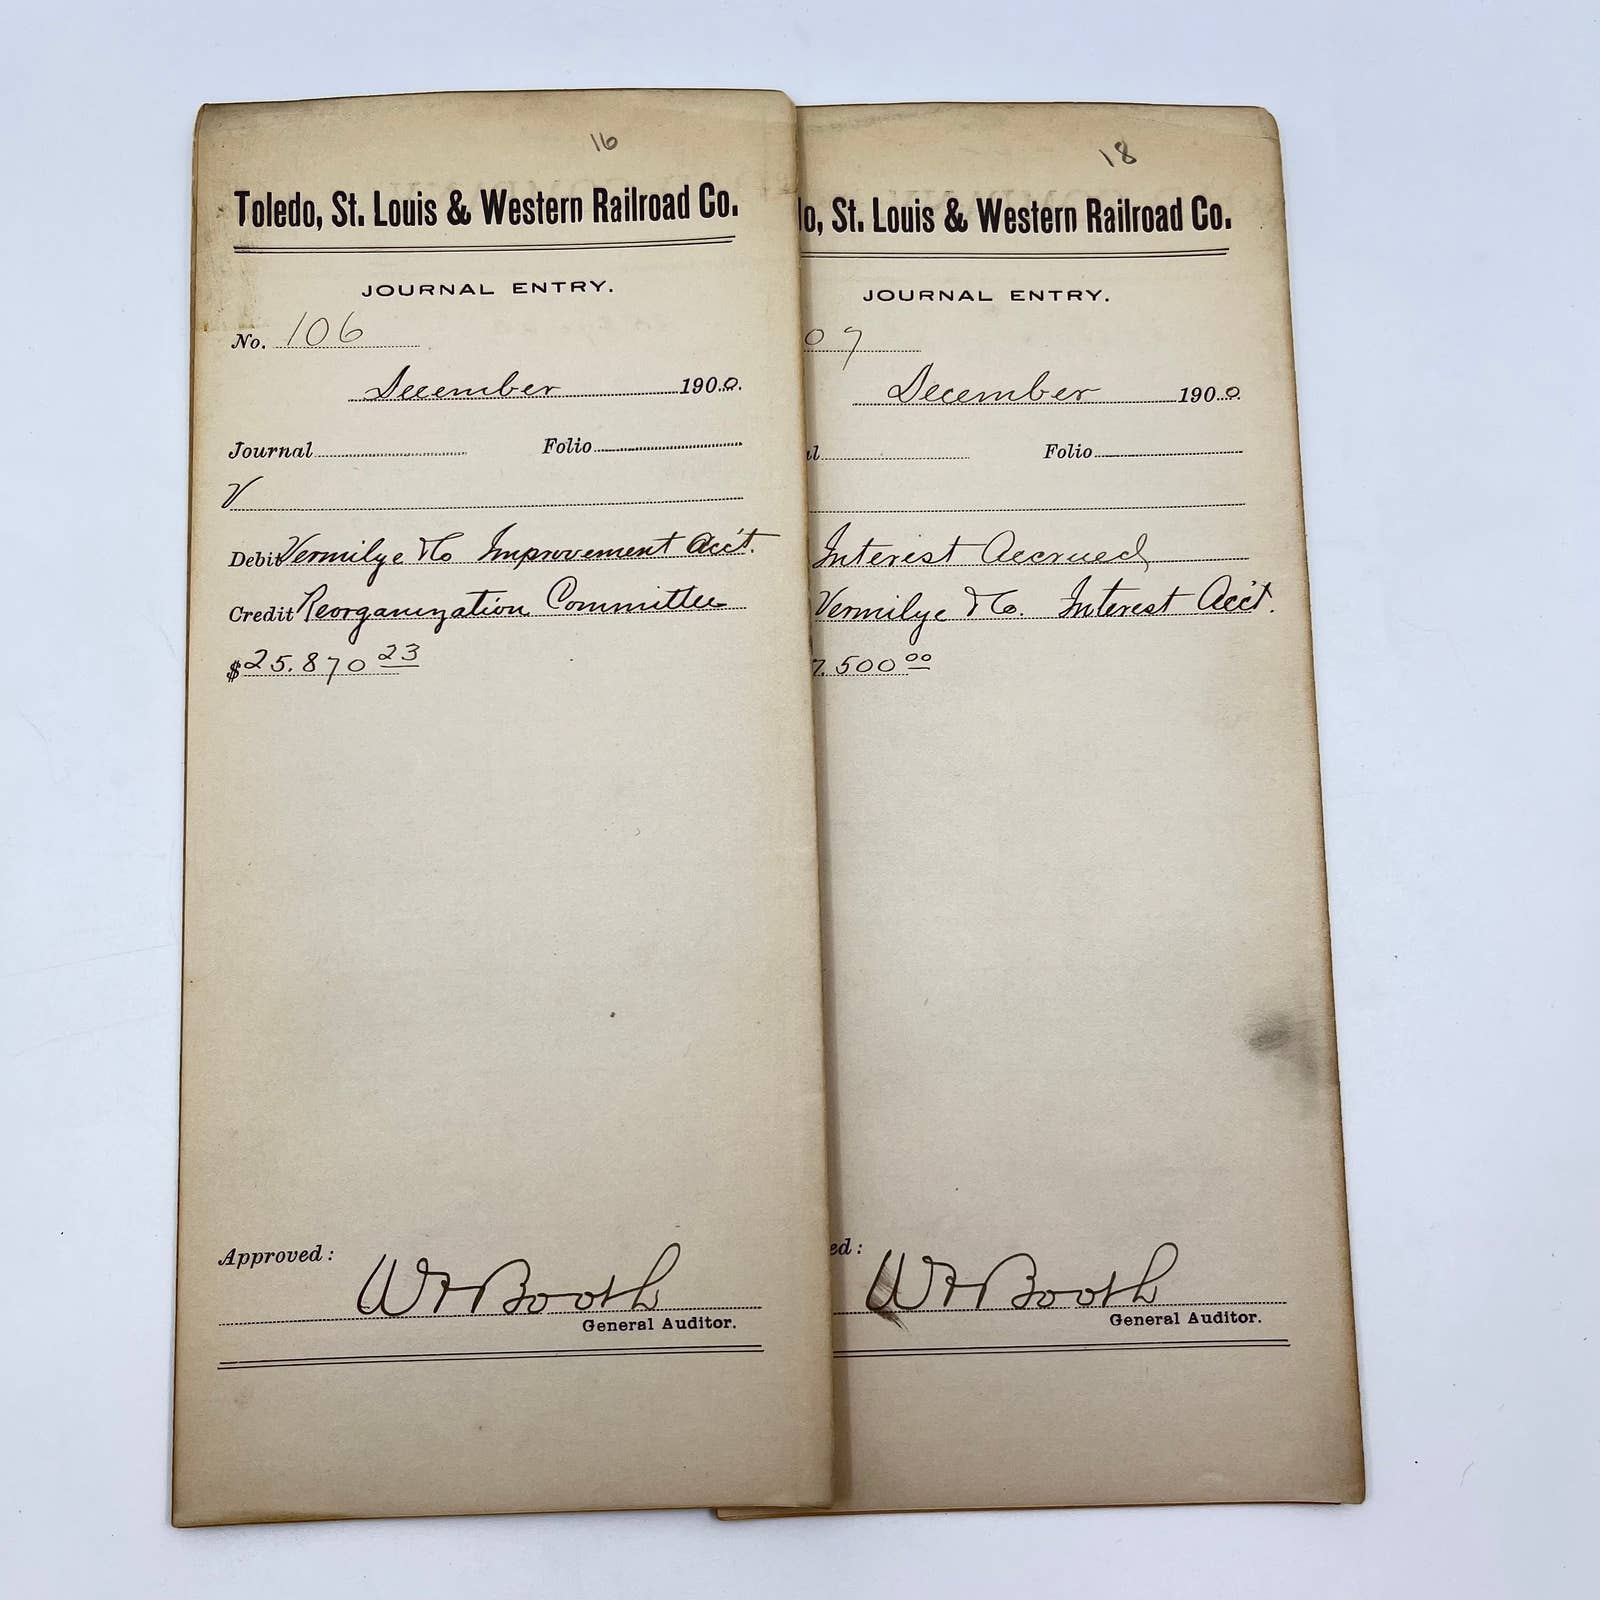 16
Toledo, St. Louis & Western Railroad Co.
JOURNAL ENTRY.
No. 106
December 1900.
Journal Folio
V
Debit Vermilye & Co Improvement Acc't.
Credit Reorganization Committee
$25.870 23
Approved:
W H Booth
General Auditor.
18
lo, St. Louis & Western Railroad Co.
JOURNAL ENTRY.
07
December 1900
al Folio
Interest Accrued
Vermilye & Co. Interest Acc't.
7.500 00
ed:
W H Booth
General Auditor.